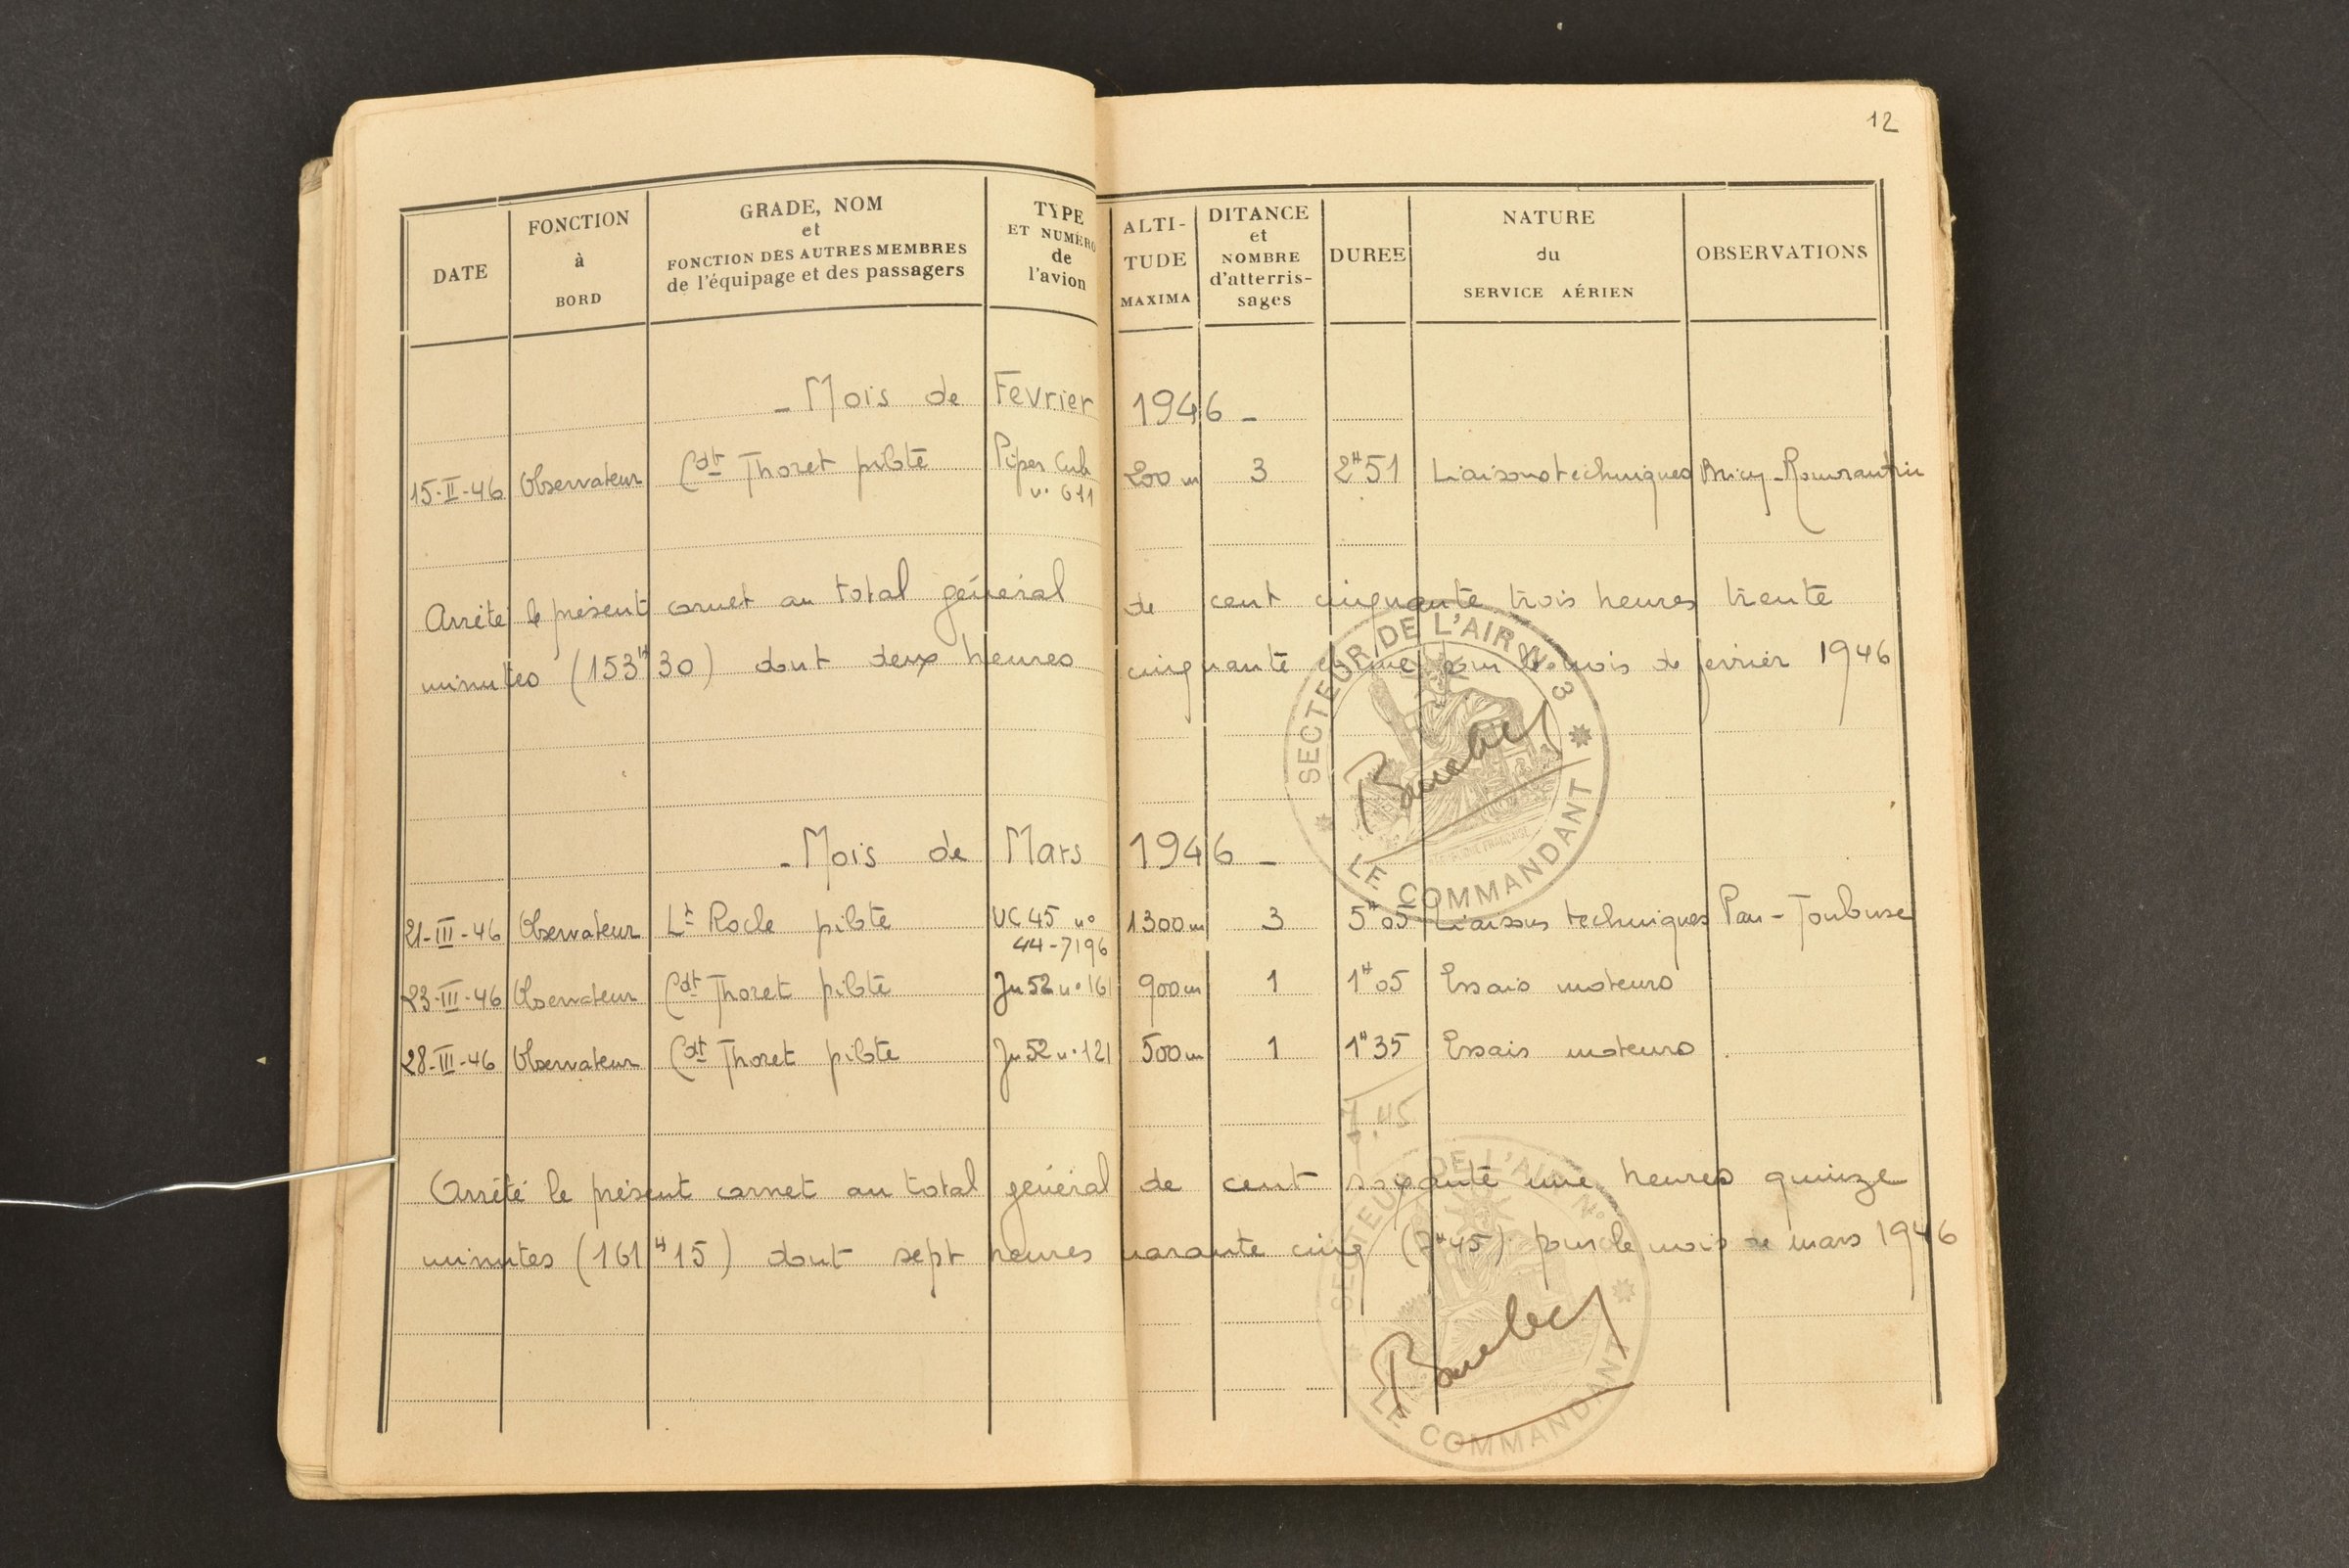 12
DATE
FONCTION
à
BORD
GRADE, NOM
et
FONCTION DES AUTRES MEMBRES
de l'équipage et des passagers
TYPE
ET NUMÉRO
de
l'avion
ALTI-
TUDE
MAXIMA
DITANCE
et
NOMBRE
d'atterris-
sages
DUREE
NATURE
du
SERVICE AÉRIEN
OBSERVATIONS
- Mois de Fevrier 1946 -
15-II-46 Observateur Cdt Thoret pilote Piper Cub 200 m 3 2H51 Liaisons techniques Bricy-Romorantin
n° 611
Arrêté le présent carnet au total général de cent cinquante trois heures trente
minutes (153H30) dont deux heures cinquante et une pour le mois de fevrier 1946
SECTEUR DE L'AIR N° 3
LE COMMANDANT
- Mois de Mars 1946 -
21-III-46 Observateur Lt Rocle pilote UC 45 n° 1300 m 3 5H05 Liaisons techniques Pau-Toulouse
44-7196
23-III-46 Observateur Cdt Thoret pilote Ju 52 n° 161 900 m 1 1H05 Essais moteurs
28-III-46 Observateur Cdt Thoret pilote Ju 52 n° 121 500 m 1 1H35 Essais moteurs
7.45
Arrêté le présent carnet au total général de cent soixante une heures quinze
minutes (161H15) dont sept heures narante cinq (7H45) pour le mois de mars 1946
SECTEUR DE L'AIR N°
LE COMMANDANT